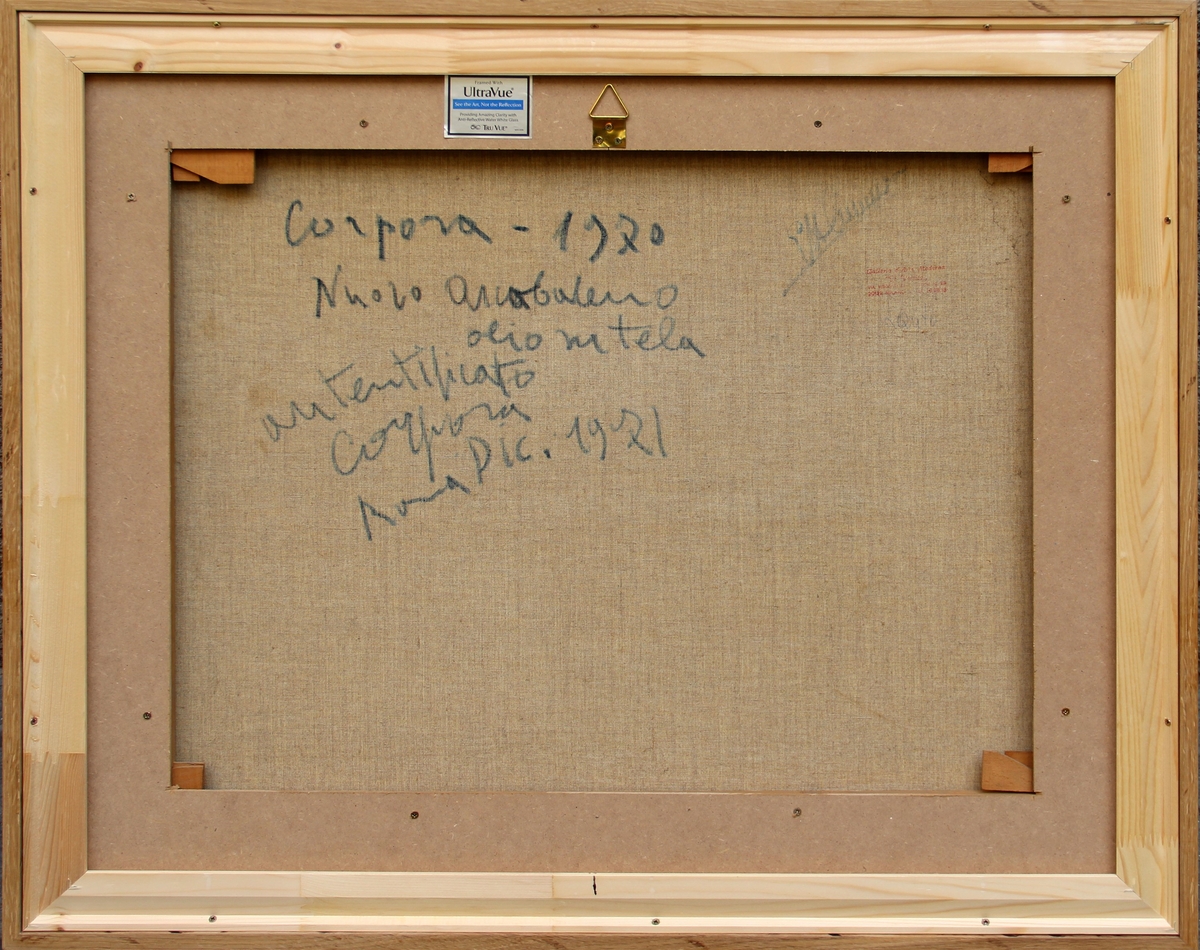 Framed With
UltraVue®
See the Art, Not the Reflection
Providing Amazing Clarity with
Anti-Reflective Water White Glass
TRU VUE®
Corpora - 1970
Nuovo Arcobaleno
olio su tela
autentificato
Corpora
Roma Dic. 1971